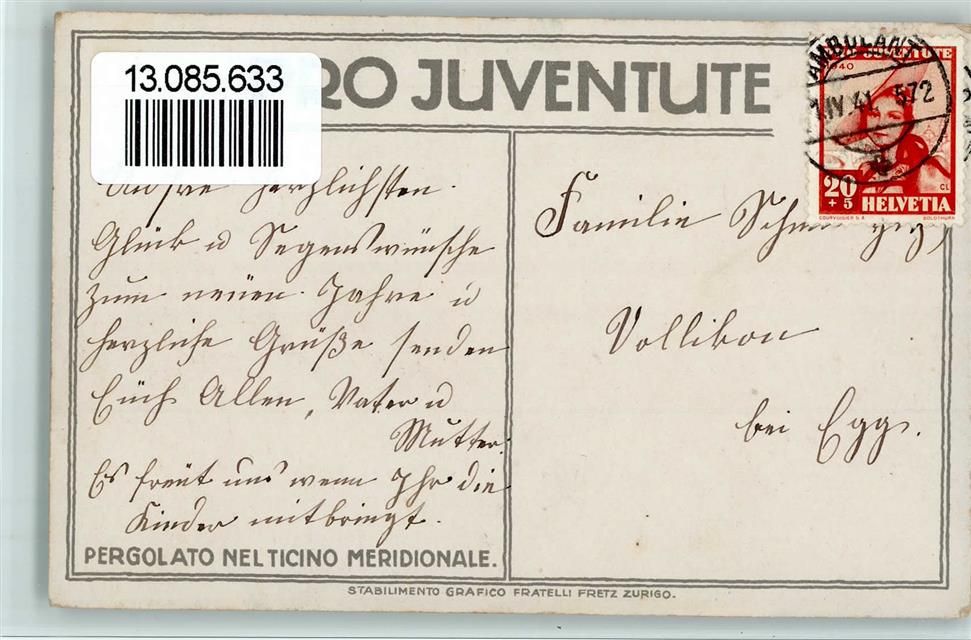 13.085.633
RO JUVENTUTE
Unsre herzlichsten
Glück u Segenswünsche
zum neuen Jahre u
herzliche Grüße senden
Euch Allen, Vater u
Mutter.
Es freut uns wenn Ihr die
Kinder mitbringt.
PERGOLATO NEL TICINO MERIDIONALE.
AMBULANT
IV 41 572
PRO JUVENTUTE
1940
20
+ 5
HELVETIA
CL
COURVOISIER S.A.
Familie
Vollikon
bei Egg.
STABILIMENTO GRAFICO FRATELLI FRETZ ZURIGO.